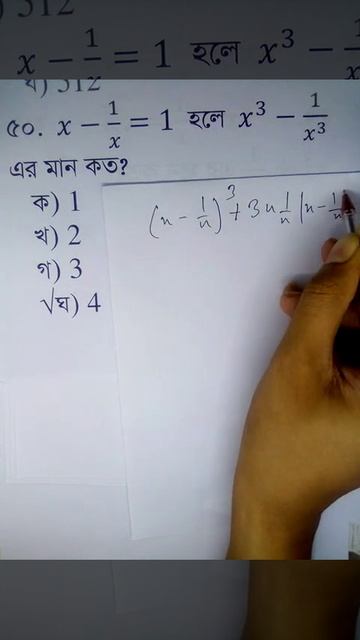 ) 512
x - 1/x = 1 হলে x³ -
ঘ) 512
৫০. x - 1/x = 1 হলে x³ - 1/x³
এর মান কত?
ক) 1
খ) 2
গ) 3
√ঘ) 4
(x - 1/x)³ + 3x 1/x (x - 1/x